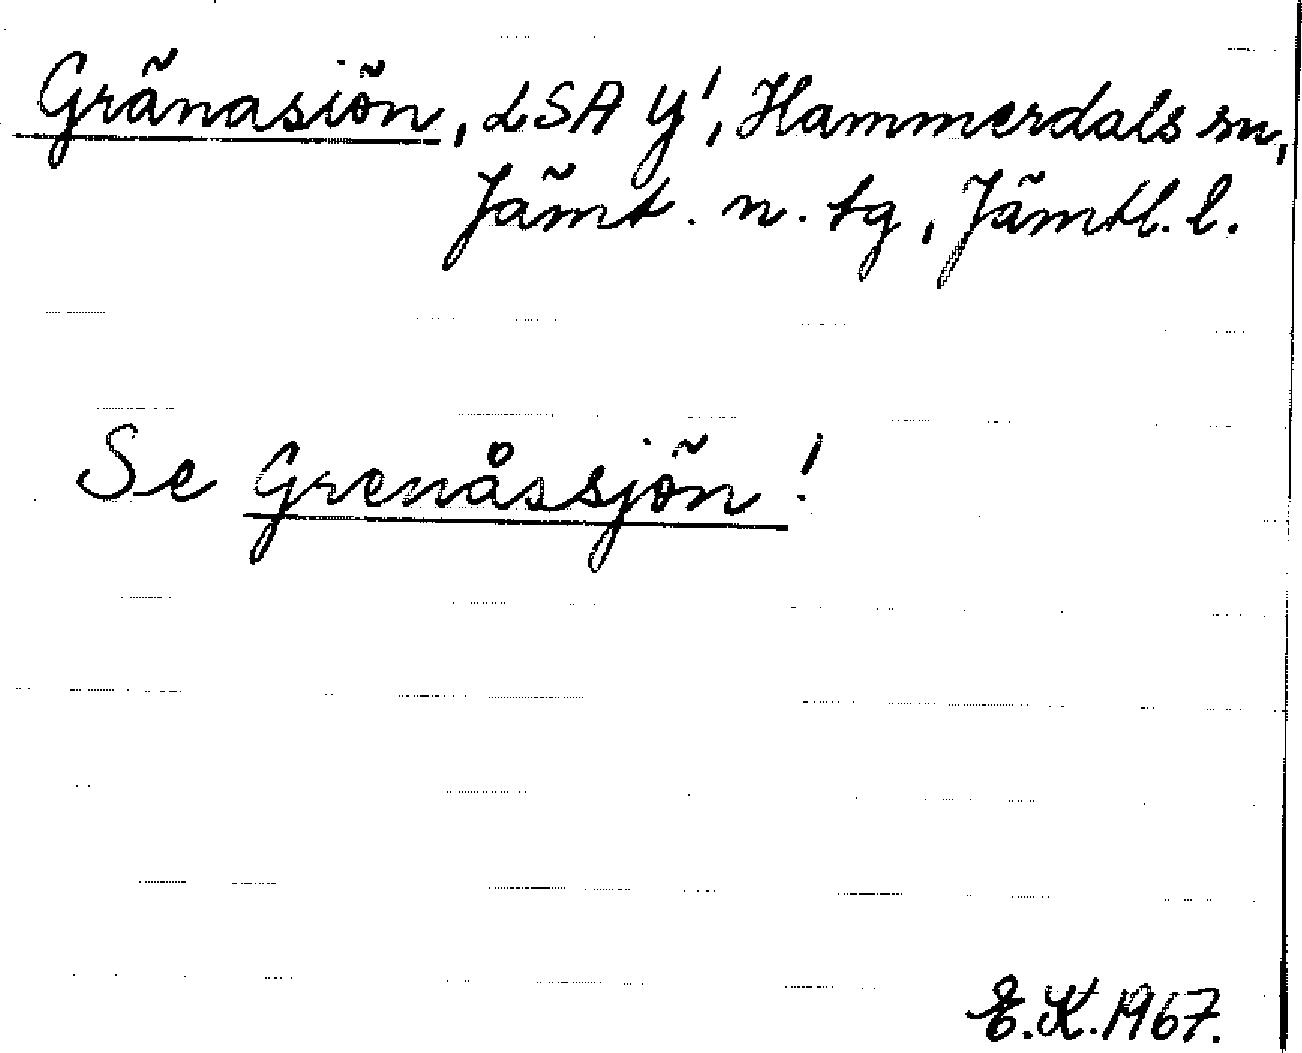 Gränasiön, LSA Y', Hammerdals sn,
Jämt. n. tg, Jämtl. l.
Se Grenåssjön!
E.K. 1967.